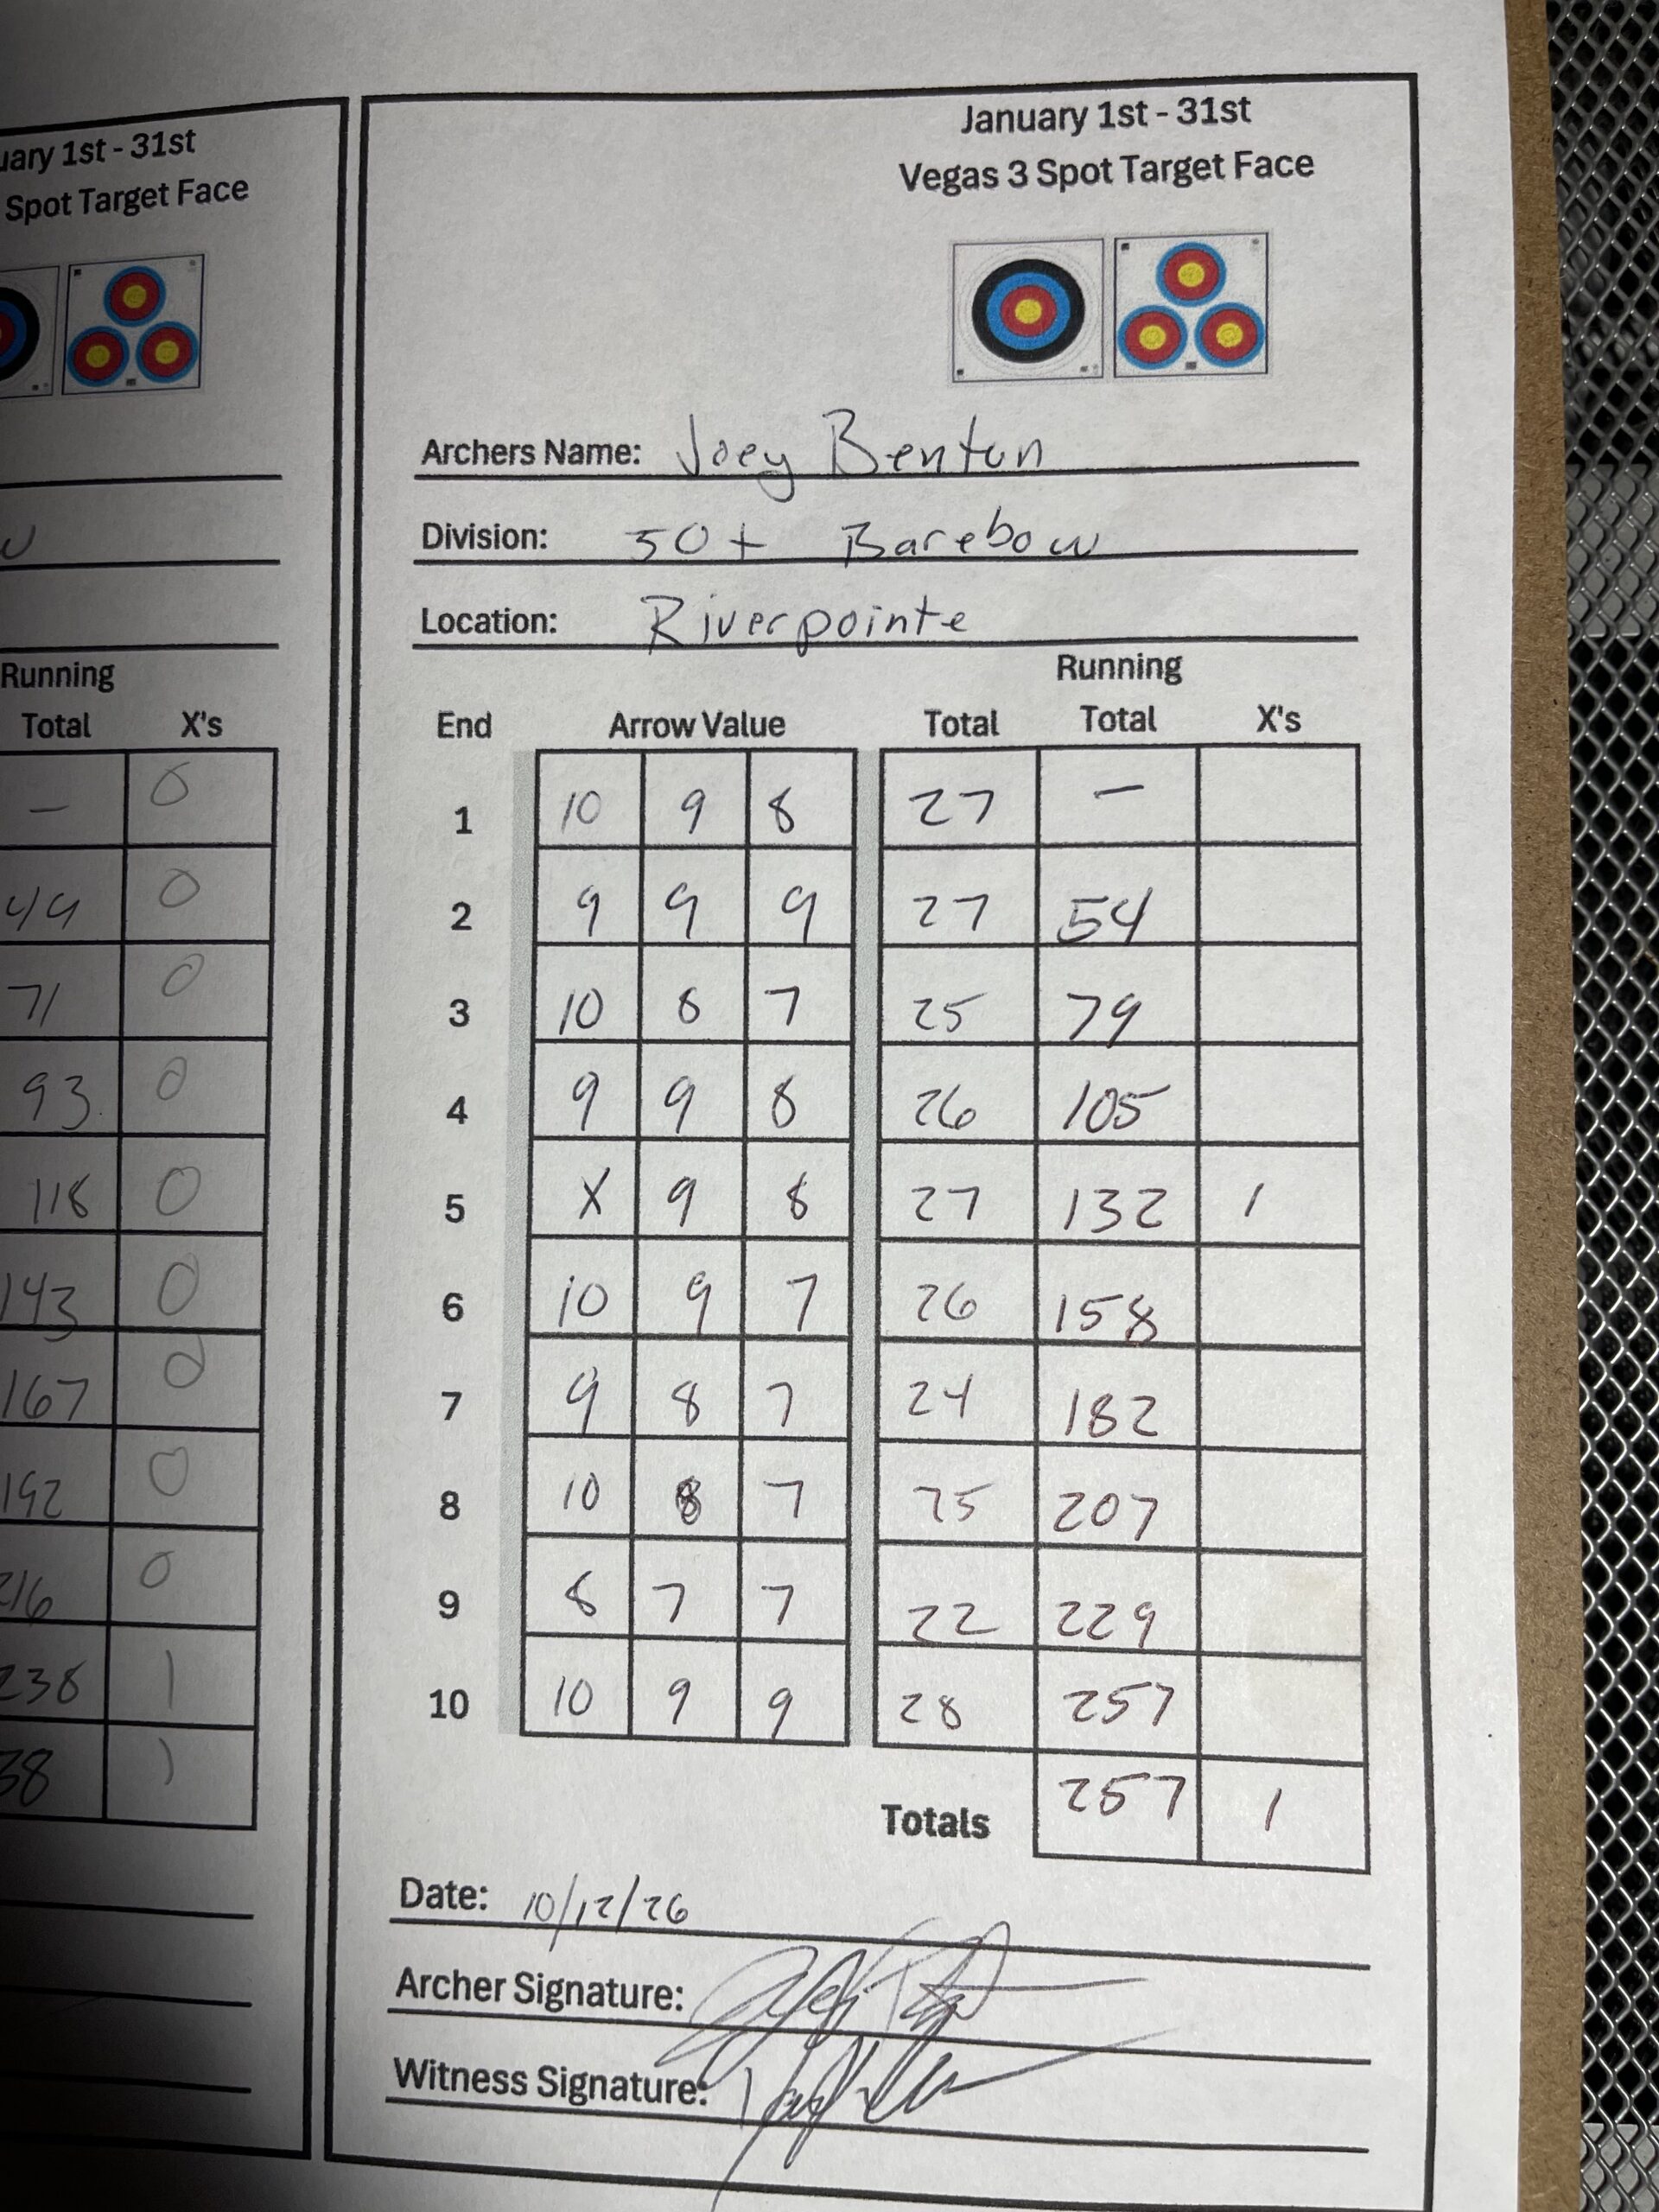 uary 1st - 31st
Spot Target Face
Running
Total X's
— 0
49 0
71 0
93 0
118 0
143 0
167 0
192 0
216 0
238 1
38 1
January 1st - 31st
Vegas 3 Spot Target Face
Archers Name: Joey Benton
Division: 50+ Barebow
Location: Riverpointe
Running
End Arrow Value Total Total X's
1 10 9 8 27 —
2 9 9 9 27 54
3 10 8 7 25 79
4 9 9 8 26 105
5 X 9 8 27 132 1
6 10 9 7 26 158
7 9 8 7 24 182
8 10 8 7 25 207
9 8 7 7 22 229
10 10 9 9 28 257
Totals 257 1
Date: 10/12/26
Archer Signature:
Witness Signature: